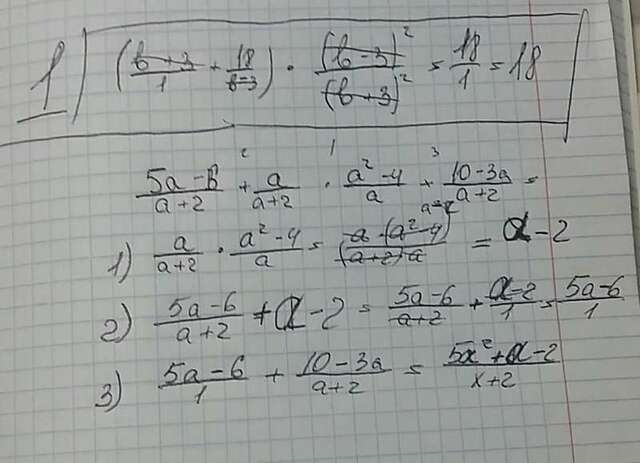 1) (b+3/1 + 18/b-3) · (b-3)²/(b+3)² = 18/1 = 18
5a-6/a+2 + a/a+2 · a²-4/a + 10-3a/a+2 =
1) a/a+2 · a²-4/a = a·(a²-4)/(a+2)a = a-2
2) 5a-6/a+2 + a-2 = 5a-6/a+2 + a-2/1 = 5a-6/1
3) 5a-6/1 + 10-3a/a+2 = 5a²+a-2/x+2